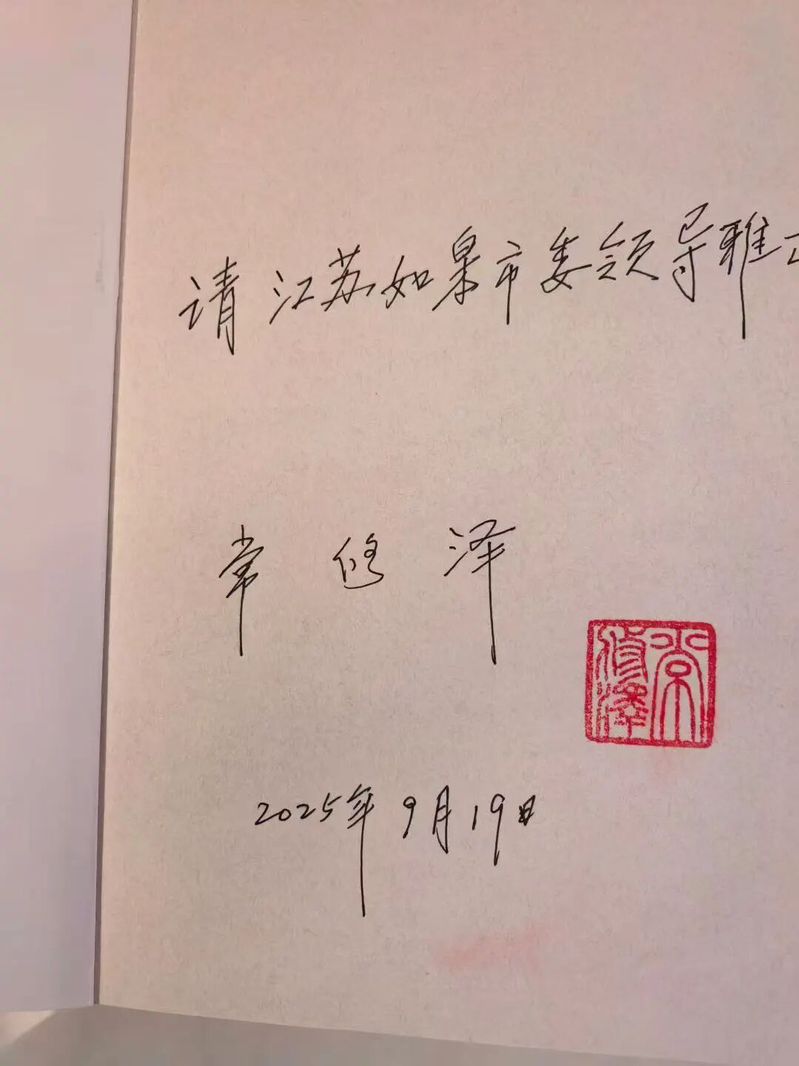 请江苏如皋市委领导雅
常修泽
常修泽
2025年9月19日